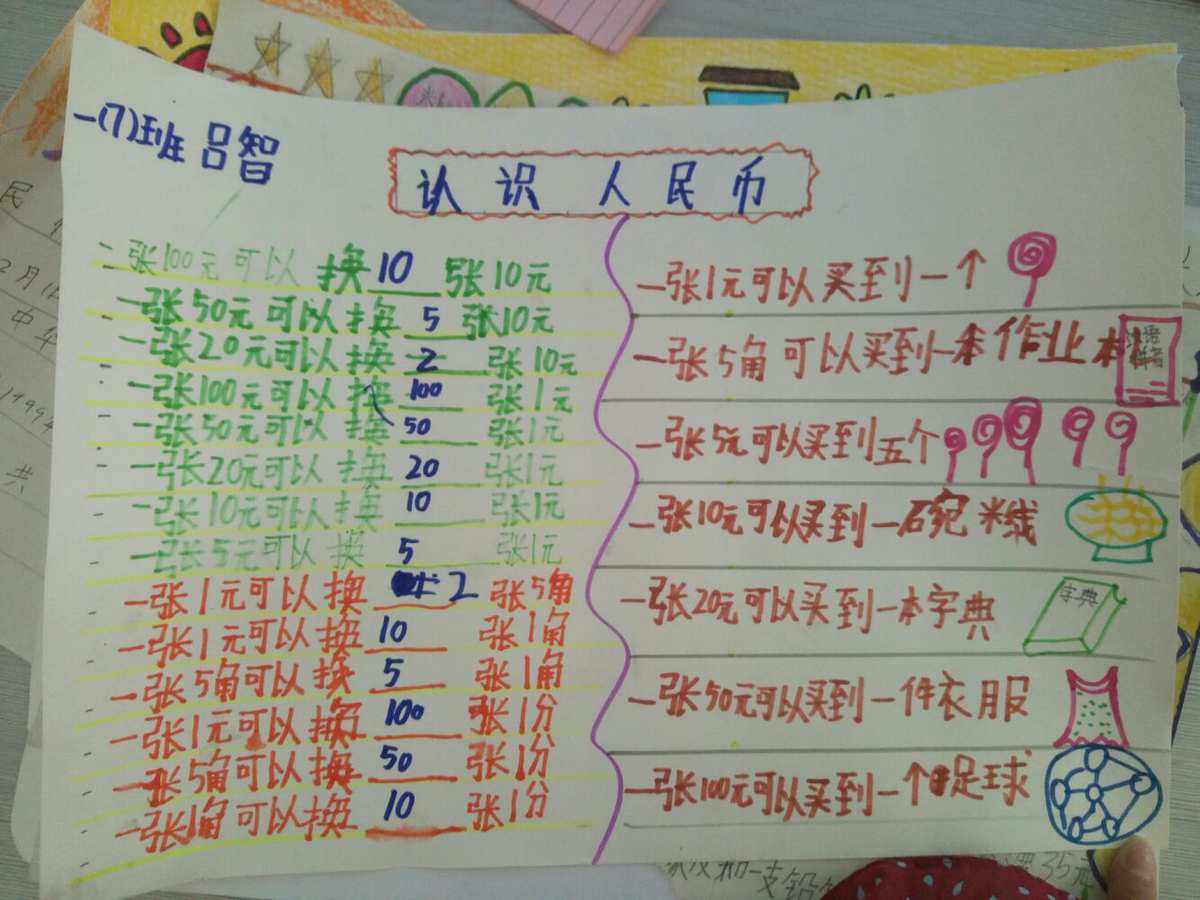 一(7)班 吕智
认识人民币
一张100元可以换10张10元
一张50元可以换5张10元
一张20元可以换2张10元
一张100元可以换100张1元
一张50元可以换50张1元
一张20元可以换20张1元
一张10元可以换10张1元
一张5元可以换5张1元
一张1元可以换2张5角
一张1元可以换10张1角
一张5角可以换5张1角
一张1元可以换100张1分
一张5角可以换50张1分
一张1角可以换10张1分
一张1元可以买到一个
一张5角可以买到一本作业本
一张5元可以买到五个
一张10元可以买到一碗米线
一张20元可以买到一本字典
字典
一张50元可以买到一件衣服
一张100元可以买到一个足球
民
2月1
中华
1994
共
一支铅
35元